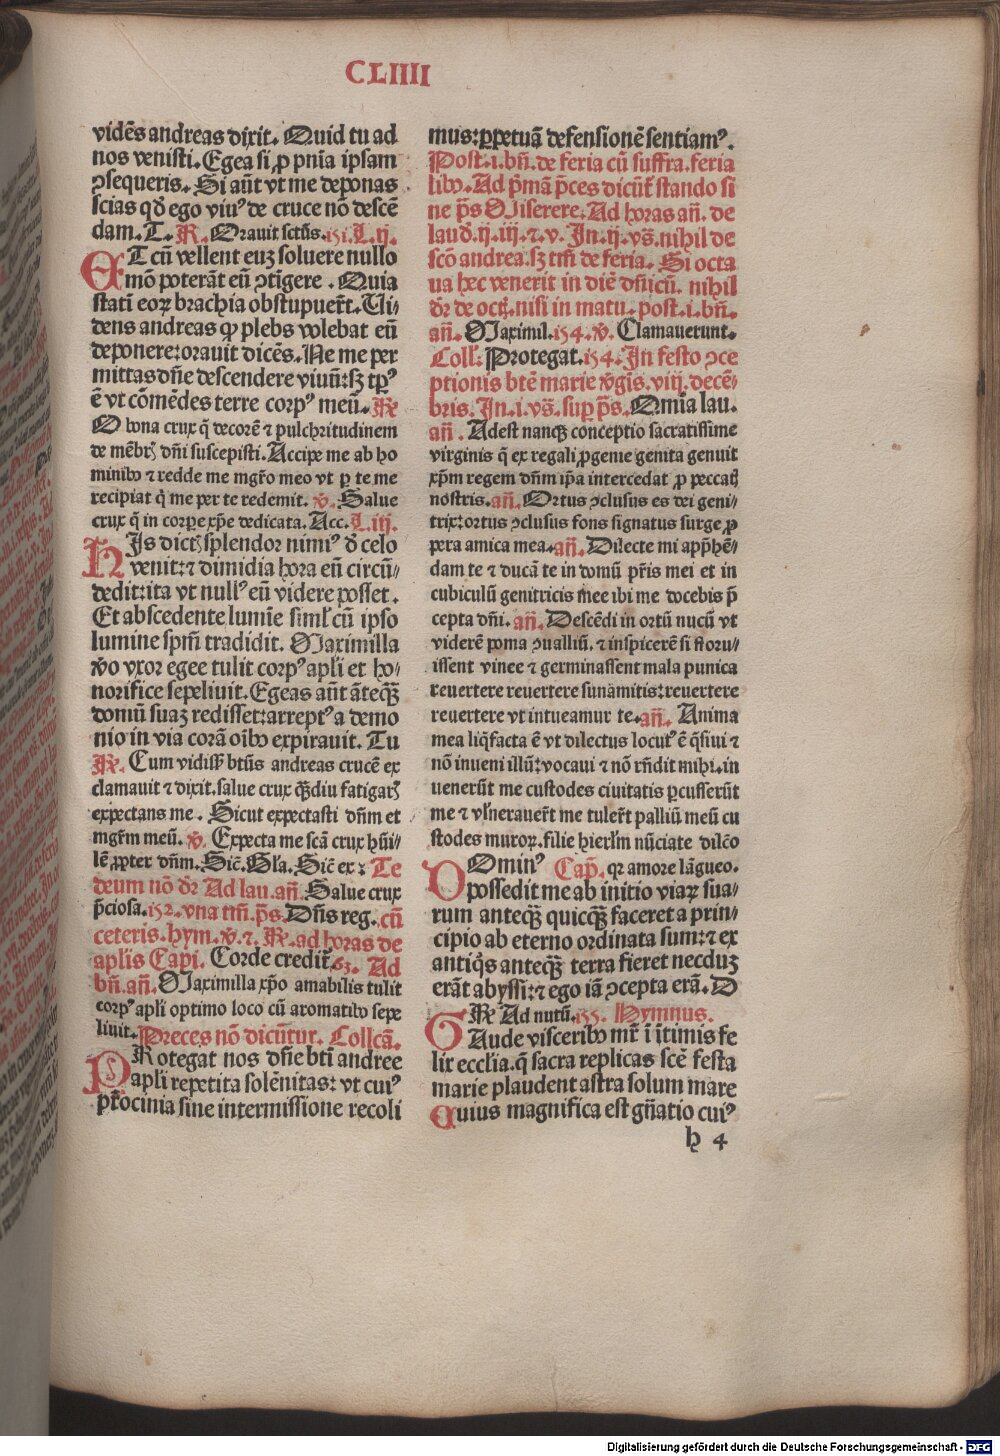 CLIIII
vidēs andreas dixit. Quid tu ad
nos venisti. Egea si ꝓ pnīa ipsam
ꝯsequeris. Si aūt vt me deponas
scias qđ ego viuꝰ de cruce nō descē
dam. T. R. Orauit sctūs. 151. L. ij.
ET cū vellent euꝫ soluere nullo
mō poterāt eū ꝯtigere. Quia
statī eoꝝ brachia obstupuer̄t. Vi-
dens andreas ꝙ plebs volebat eū
deponere: orauit dicēs. Ne me per
mittas dn̄e descendere viuū: sꝫ tp̄ꝰ
ē vt cōmēdes terre corpꝰ meū. R̄
O bona crux q̄ decorē ⁊ pulchritudinem
de mēbrꝭ dn̄i suscepisti. Accipe me ab ho
minibꝰ ⁊ redde me mgr̄o meo vt ꝑ te me
recipiat q̄ me per te redemit. v̄. Salue
crux q̄ in corpe xp̄e dedicata. Acc. L. iij.
HIs dictꝭ splendor nimiꝰ đ celo
venit: ⁊ dimidia hora eū circū-
dedit: ita vt nullꝰ eū videre posset.
Et abscedente lumīe simĺ cū ipso
lumine spm̄ tradidit. Maximilla
v̄o vxor egee tulit corpꝰ apli et ho-
norifice sepeliuit. Egeas aūt āteqꝫ
domū suaꝫ redisset: arreptꝰ a demo
nio in via corā oībꝰ expirauit. Tu
R̄. Cum vidiss̄ btūs andreas crucē ex
clamauit ⁊ dixit. salue crux qꝫdiu fatigatꝭ
expectans me. Sicut expectasti dn̄m et
mgr̄m meū. v̄. Expecta me scā crux hūi-
lē ꝓpter dn̄m. Sic̄. Gĺa. Sic̄ ex: Te
deum nō đr Ad lau. an̄. Salue crux
p̄ciosa. 152. vna tm̄. ps̄. Dn̄s reg. cū
ceteris. hym. v̄. ⁊. R̄. ad horas de
aplis Capi. Corde credit̄. 63. Ad
bn̄. an̄. Maximilla xp̄o amabilis tulit
corpꝰ apli optimo loco cū aromatibꝰ sepe
liuit. Preces nō dicūtur. Collcā.
PRotegat nos dn̄e bti andree
apli repetita solēnitas: vt cuiꝰ
pr̄ocinia sine intermissione recoli
mus: ꝑpetuā defensionē sentiamꝰ.
Post. i. bn̄. de feria cū suffra. feria
libꝰ. Ad p̄mā p̄ces dicūt̄ stando si
ne ps̄ Miserere. Ad horas an̄. de
laud. ij. iij. ⁊. v. In. ij. vs̄. nihil de
scō andrea. sꝫ tm̄ de feria. Si octa
ua hec venerit in diē dn̄icū. nihil
đr de oct̄. nisi in matu. post. i. bn̄.
an̄. Maximil. 154. v̄. Clamauerunt.
Coll: Protegat. 154. In festo ꝯce
ptionis btē marie v̄gīs. viij. decē-
bris. In. i. vs̄. suꝑ ps̄. Omīa lau.
an̄. Adest nanqꝫ conceptio sacratissime
virginis q̄ ex regali ꝓgenie genita genuit
xp̄m regem dn̄m ip̄a intercedat ꝓ peccatꝭ
nostris. an̄. Ortus ꝯclusus es dei geni-
trix: ortus ꝯclusus fons signatus surge ꝓ
pera amica mea. an̄. Dilecte mi app̄hē-
dam te ⁊ ducā te in domū pr̄is mei et in
cubiculū genitricis mee ibi me docebis p̄
cepta dn̄i. an̄. Descēdi in ortū nucū vt
viderē poma ꝯualliū. ⁊ inspicerē si floru-
issent vinee ⁊ germinassent mala punica
reuertere reuertere sunamitis: reuertere
reuertere vt intueamur te. an̄. Anima
mea liq̄facta ē vt dilectus locutꝰ ē q̄siui ⁊
nō inueni illū: vocaui ⁊ nō rn̄dit mihi. in
uenerūt me custodes ciuitatis ꝑcusserūt
me ⁊ vĺnerauer̄t me tuler̄t palliū meū cu
stodes muroꝝ. filie hierĺm nūciate dilc̄o
DOminꝰ Cap̄. qꝛ amore lāgueo.
possedit me ab initio viaꝝ sua-
rum anteqꝫ quicqꝫ faceret a prin-
cipio ab eterno ordinata sum: ⁊ ex
antiq̄s anteqꝫ terra fieret necduꝫ
erāt abyssi: ⁊ ego iā ꝯcepta erā. D
R̄ Ad nutū. 155. Hymnus.
GAude visceribꝰ mr̄ ī ītimis fe
lix ecclīa. q̄ sacra replicas scē festa
marie plaudent astra solum mare
Cuius magnifica est gn̄atio cuiꝰ
h 4
Digitalisierung gefördert durch die Deutsche Forschungsgemeinschaft - DFG